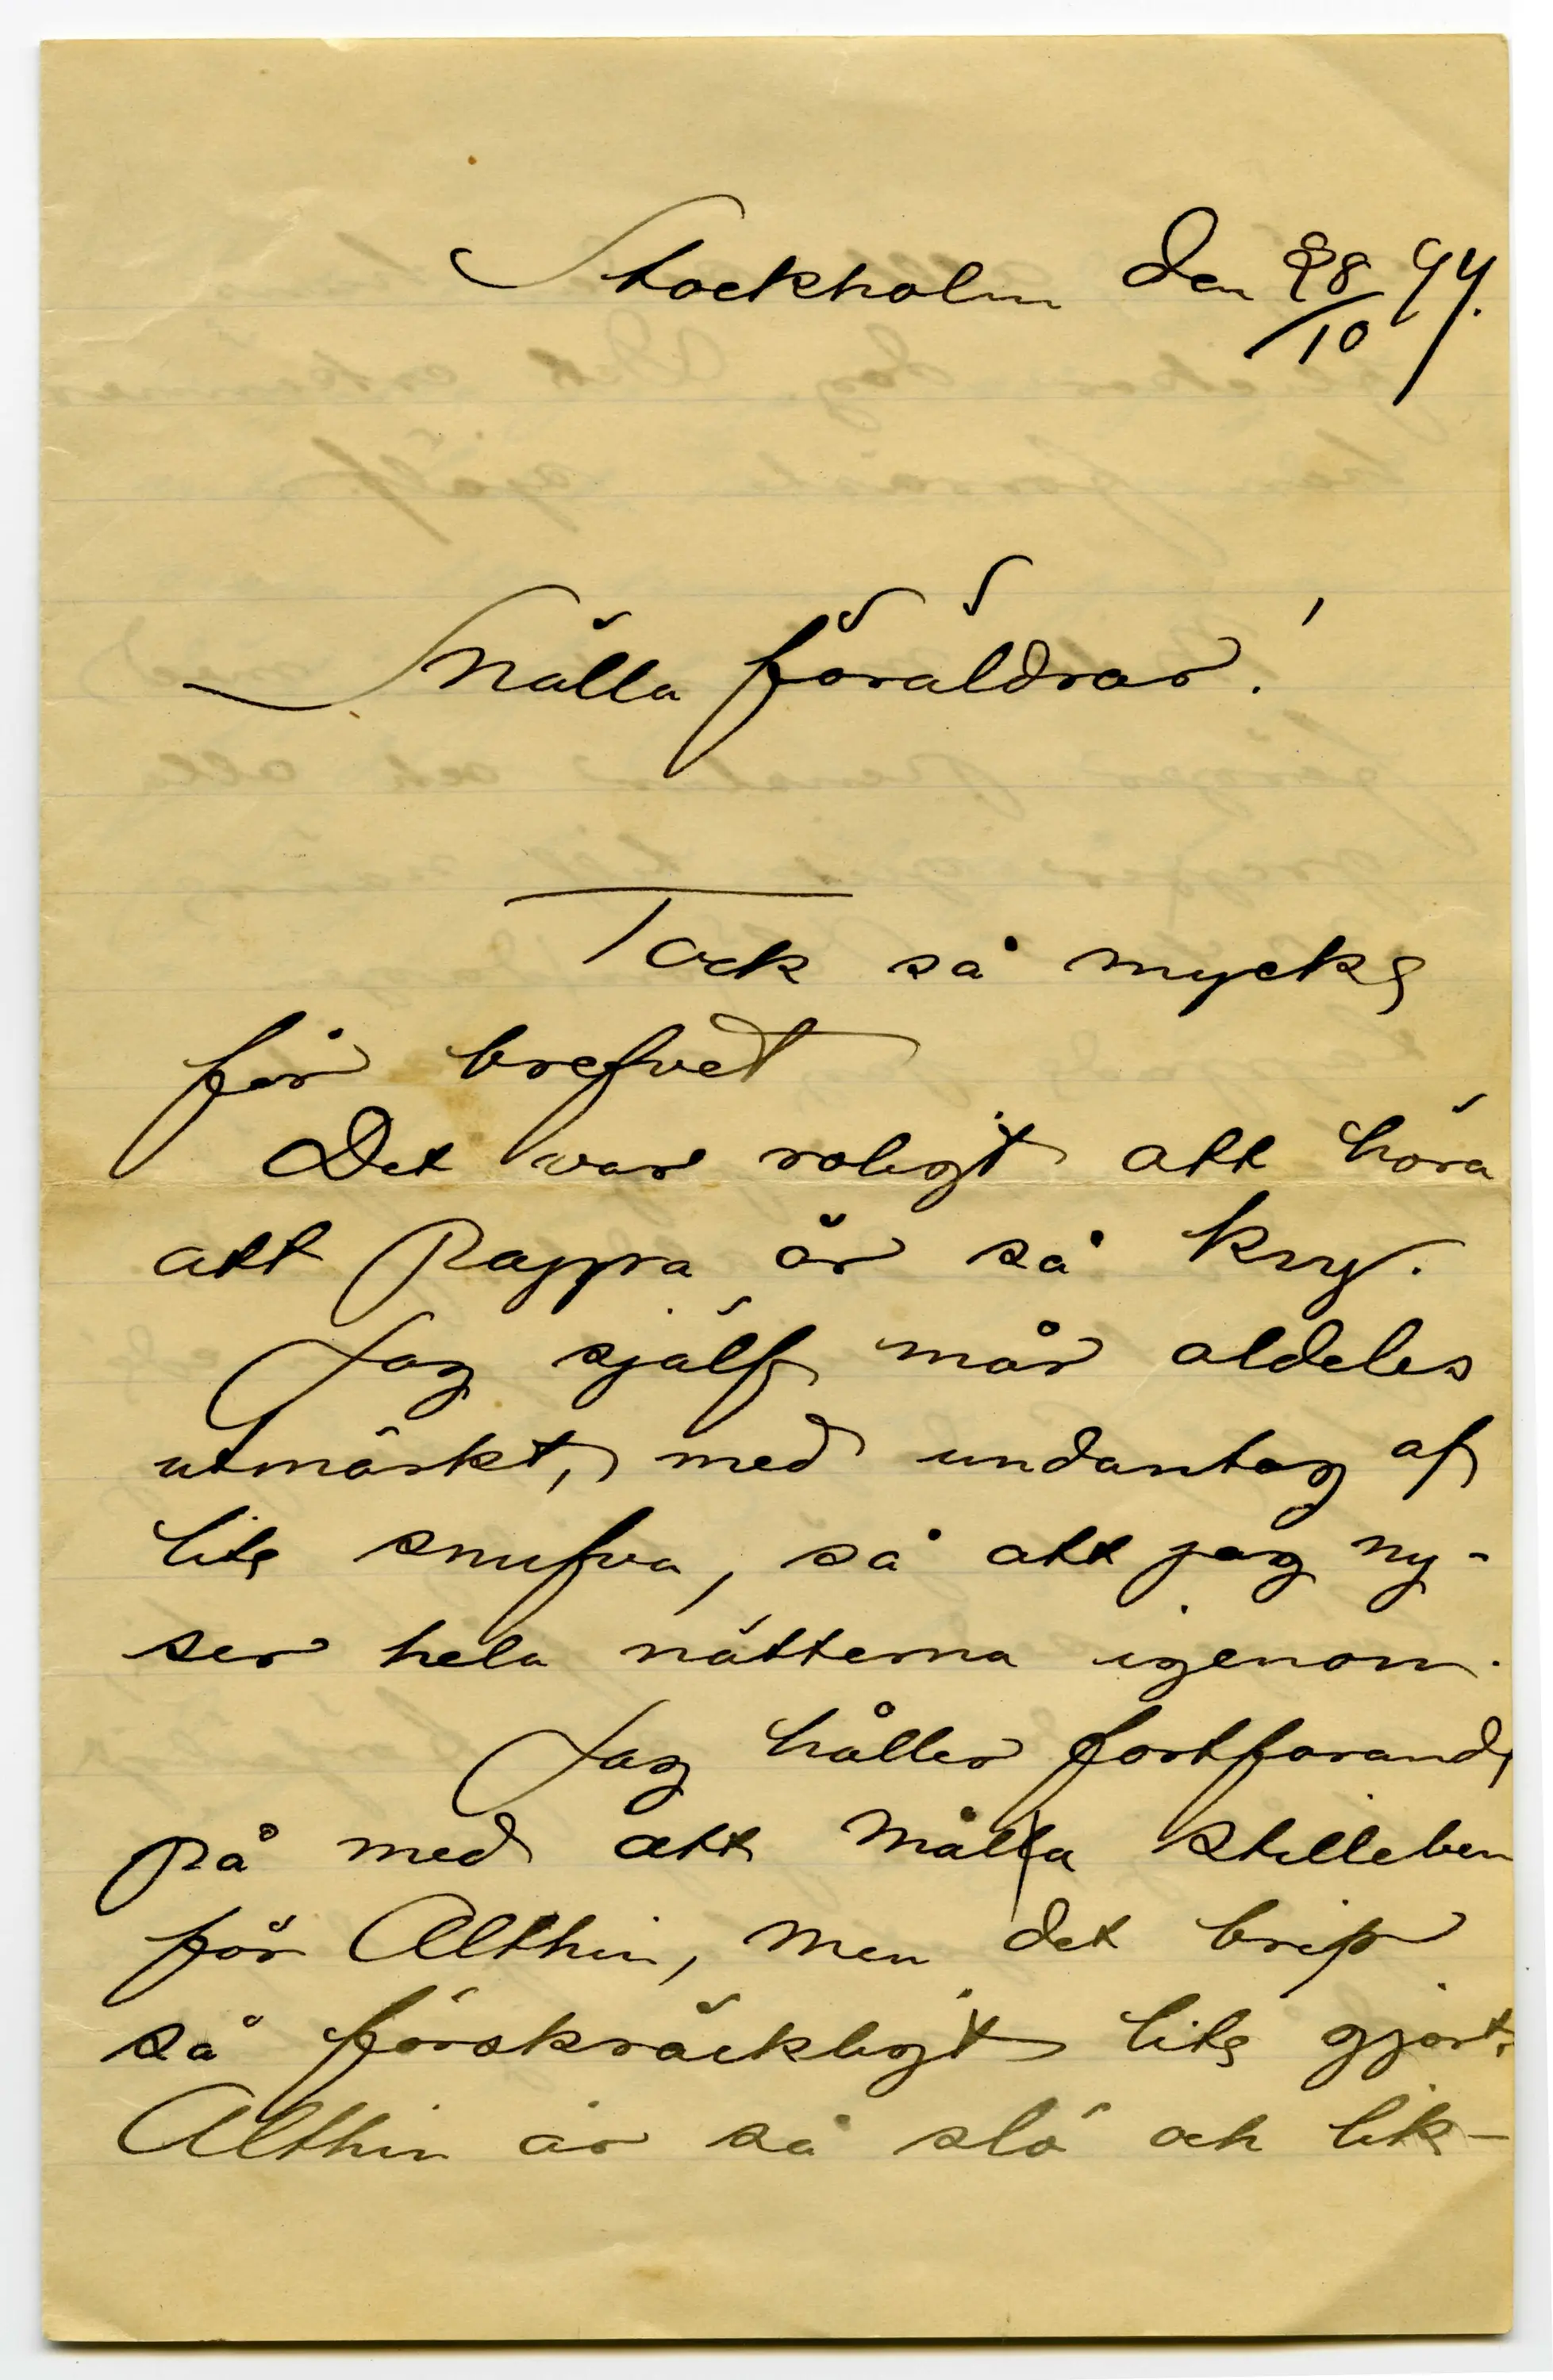 Stockholm den 28/10 94.
Snälla föräldrar!
Tack så mycke
för brefvet
Det var roligt att höra
att Pappa är så kry.
Jag själf mår aldeles
utmärkt, med undantag af
lite snufva, så att jag ny-
ser hela nätterna igenom.
Jag håller fortfarande
på med att måla stilleben
för Althin, men det blir
så förskräckligt lite gjort.
Althin är så slö och lik-